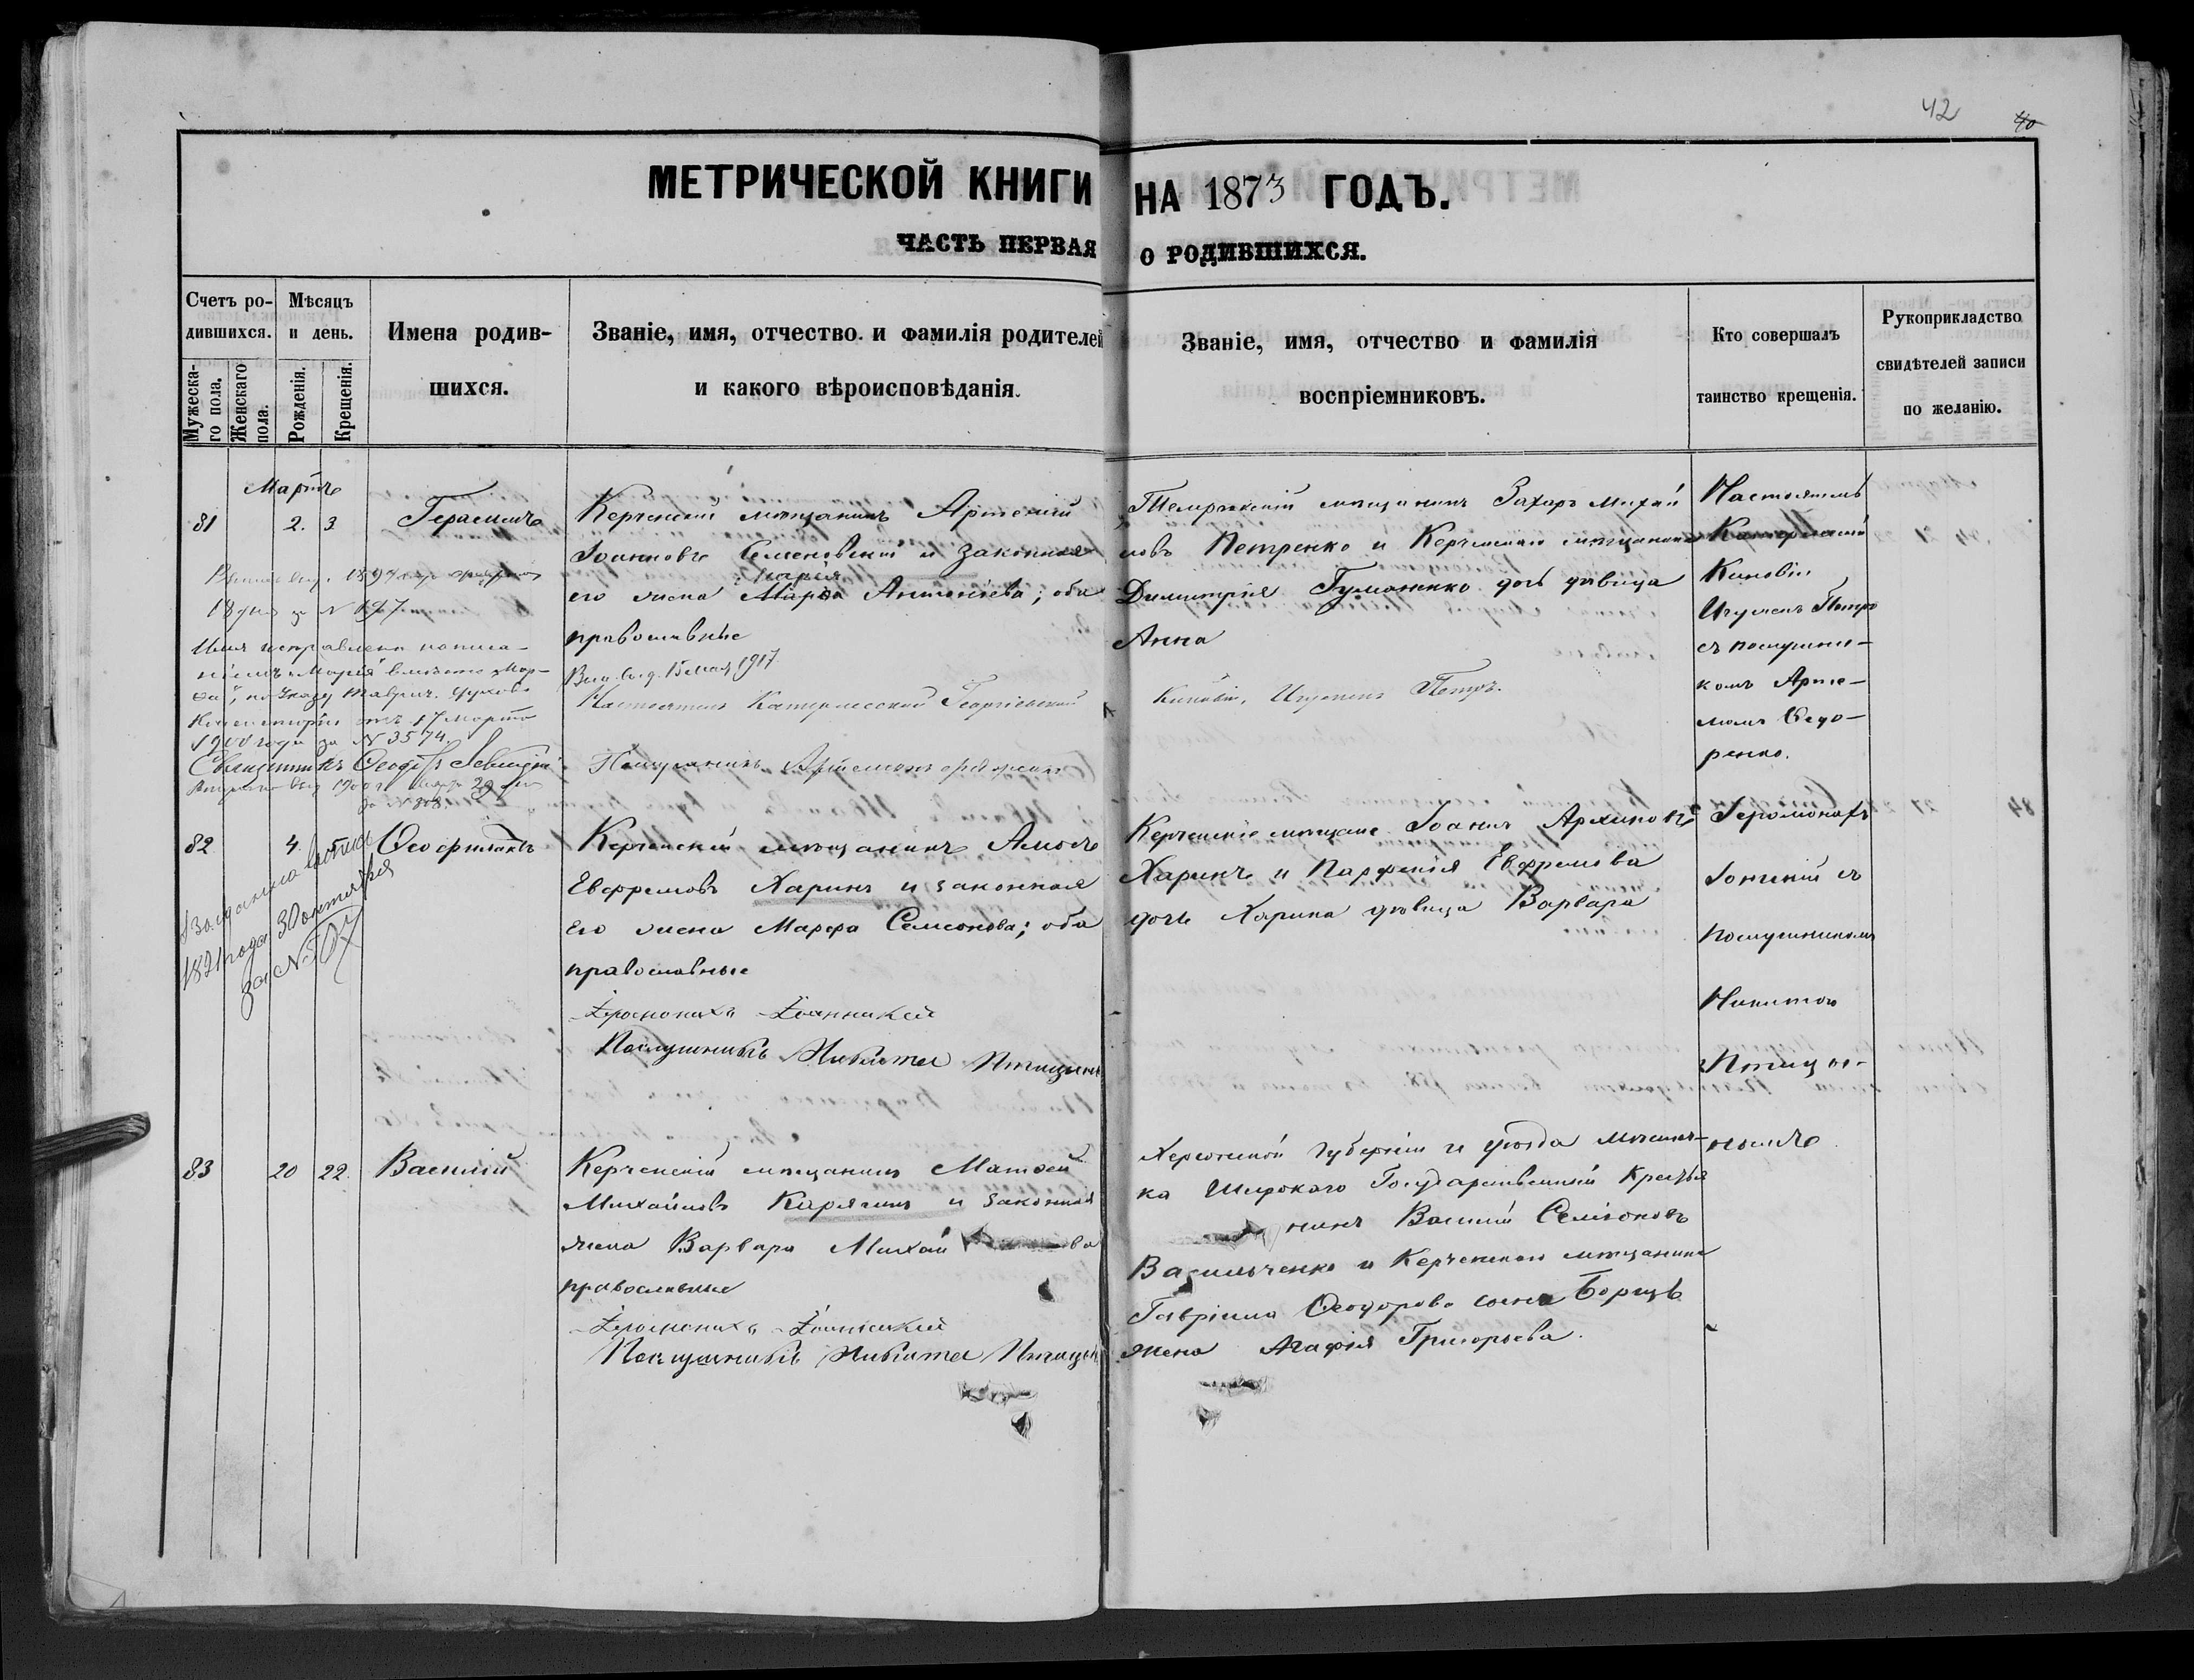 42
40
МЕТРИЧЕСКОЙ КНИГИ НА 1873 ГОДЪ.
ЧАСТЬ ПЕРВАЯ О РОДИВШИХСЯ.
Счетъ ро-
дившихся.
Мужеска-
го пола.
Женскаго
пола.
Мѣсяцъ
и день.
Рожденія.
Крещенія.
Имена родив-
шихся.
Званіе, имя, отчество и фамилія родителей
и какого вѣроисповѣданія.
Званіе, имя, отчество и фамилія
воспріемниковъ.
Кто совершалъ
таинство крещенія.
Рукоприкладство
свидѣтелей записи
по желанію.
Мартъ
81 2. 3 Герасимъ
Керченскій мѣщанинъ Артемій
Іоанновъ Семеновскій и законная
Марія
его жена Марѳа Антоніева; оба
православные
Вып. выд. 15 мая 1917
Настоятель Катерлесской Георгіевской
Киновіи, Игуменъ Петръ.
Послушникъ Артемонъ
Темрюкскій мѣщанинъ Захаръ Михай
ловъ Петренко и Керченскаго мѣщанина
Димитрія Гумоненко дочь дѣвица
Анна
Настоятель
Катерлеской
Киновіи
Игуменъ Петръ
съ послушни-
комъ Арте-
момъ Ѳедо-
ренко.
18 дня за N 127
Имя исправлено написа-
ніемъ „Марія" вмѣсто „Мар-
ѳа", по Указу Таврич. Духовн.
Консисторіи отъ 17 Марта
1900 года за N 3574.
Священникъ
82 4. Ѳеофилактъ
Керченскій мѣщанинъ Амосъ
Евфремовъ Харинъ и законная
его жена Марфа Семенова; оба
православные
Іеромонахъ Іоанникій
Послушникъ Никита Птицынъ
Керченскіе мѣщане Іоаннъ Архиповъ
Харинъ и Парфенія Евфремова
дочь Харина дѣвица Варвара
Іеромонахъ
Іоникій съ
послушникомъ
Никитою
Птицы-
нымъ
Выдана выпись
1891 года 30 октября
за N 507
83 20 22. Василій
Керченскій мѣщанинъ Матѳей
Михайловъ Карягинъ и законная
жена Варвара Михай ва
православные
Іеромонахъ Іоанникій
Послушникъ Никита Птицынъ
Херсонской губерніи и уѣзда мѣстеч-
ка Широкаго Государственный Крестья
нинъ Василій Семіоновъ
Васильченко и Керченскаго мѣщанина
Гавріила Ѳеодорова сына Борщъ
жена Агафія Григорьева.